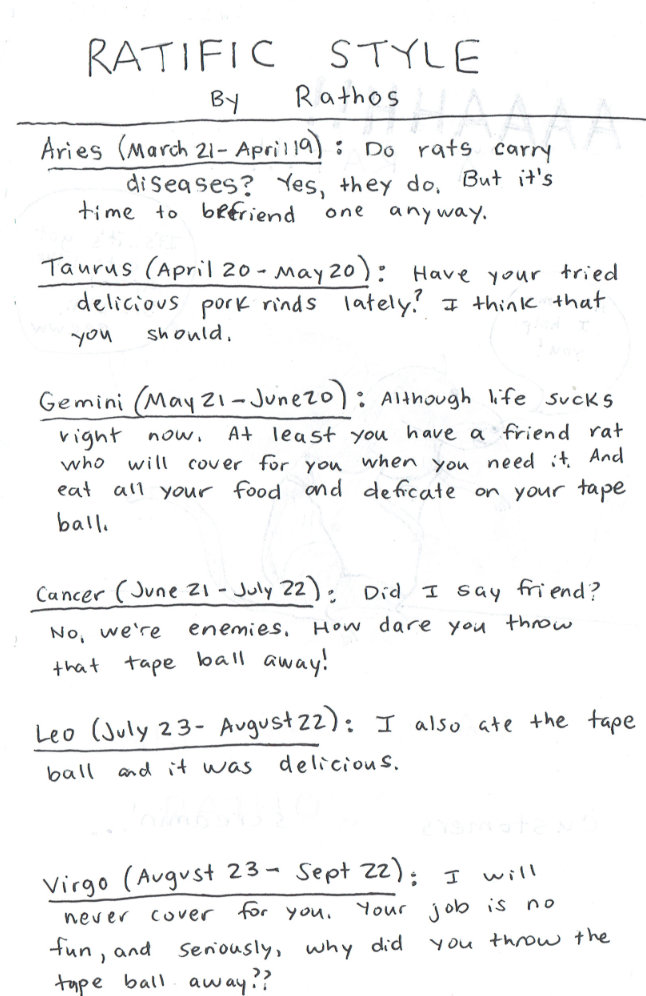 RATIFIC STYLE
By Rathos
Aries (March 21 - April 19) : Do rats carry
diseases? Yes, they do. But it's
time to befriend one anyway.
Taurus (April 20 - May 20) : Have your tried
delicious pork rinds lately? I think that
you should.
Gemini (May 21 - June 20) : Although life sucks
right now. At least you have a friend rat
who will cover for you when you need it. And
eat all your food and deficate on your tape
ball.
Cancer (June 21 - July 22) : Did I say friend?
No, we're enemies. How dare you throw
that tape ball away!
Leo (July 23 - August 22) : I also ate the tape
ball and it was delicious.
Virgo (August 23 - Sept 22) : I will
never cover for you. Your job is no
fun, and seriously, why did you throw the
tape ball away??